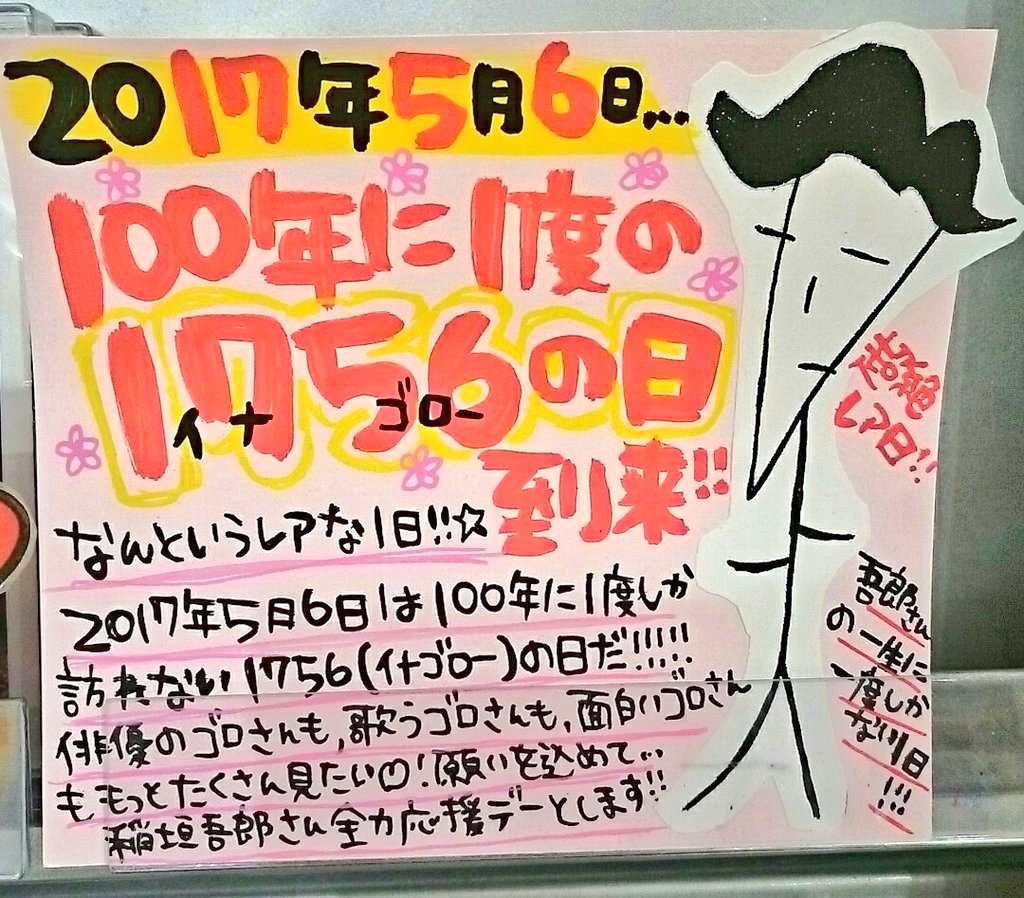 2017年5月6日...
100年に1度の
1756の日
イナ ゴロー
到来!!
超絶
レア日!!
なんというレアな1日!!☆
2017年5月6日は100年に1度しか
訪れない1756(イナゴロー)の日だ!!!!!
俳優のゴロさんも、歌うゴロさんも、面白いゴロさん
ももっとたくさん見たい♡!願いを込めて...
稲垣吾郎さん全力応援デーとします!!
吾郎さん
の一生に
一度しか
ない1日
!!!